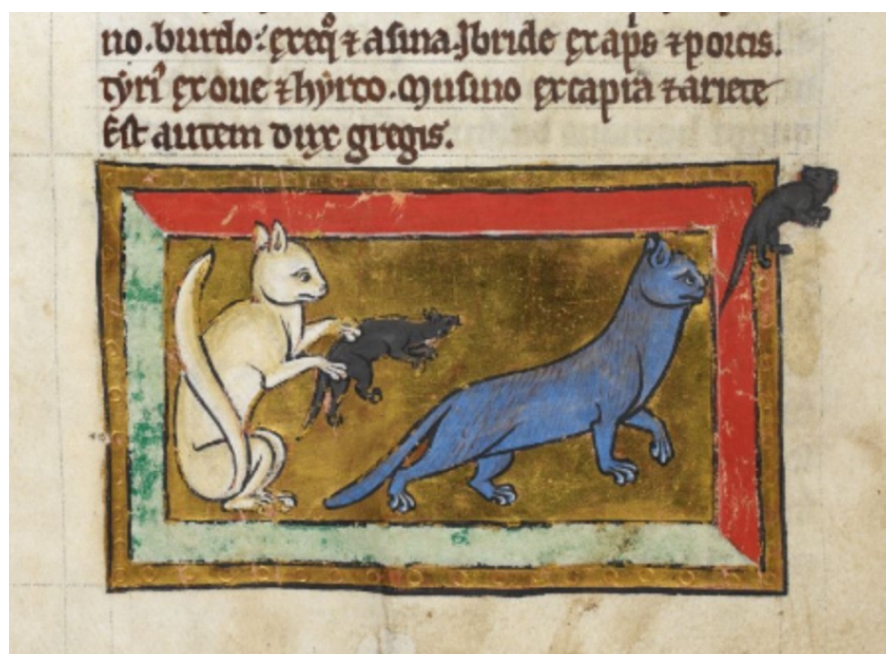 no. burdo: ex eqͦ ⁊ asina. Ibride ex ap̃s ⁊ porcis.
tẏri ex oue ⁊ hẏrco. Musino ex capra ⁊ ariete
Est autem dux gregis.